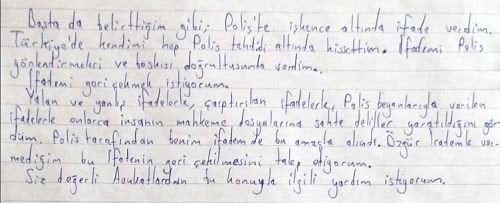 Başta da belirttiğim gibi; Polis'te işkence altında ifade verdim.
Türkiye'de kendimi hep Polis tehdidi altında hissettim. İfademi Polis
yönlendirmeleri ve baskısı doğrultusunda verdim.
İfademi geri çekmek istiyorum.
Yalan ve yanlış ifadelerle, çarpıtılan ifadelerle, Polis beyanlarıyla verilen
ifadelerle onlarca insanın mahkeme dosyalarına sahte deliller yaratıldığını gör
düm. Polis tarafından benim ifadem de bu amaçla alındı. Özgür irademle ver-
mediğim bu ifadenin geri çekilmesini talep ediyorum.
Siz değerli Avukatlardan bu konuyla ilgili yardım istiyorum.